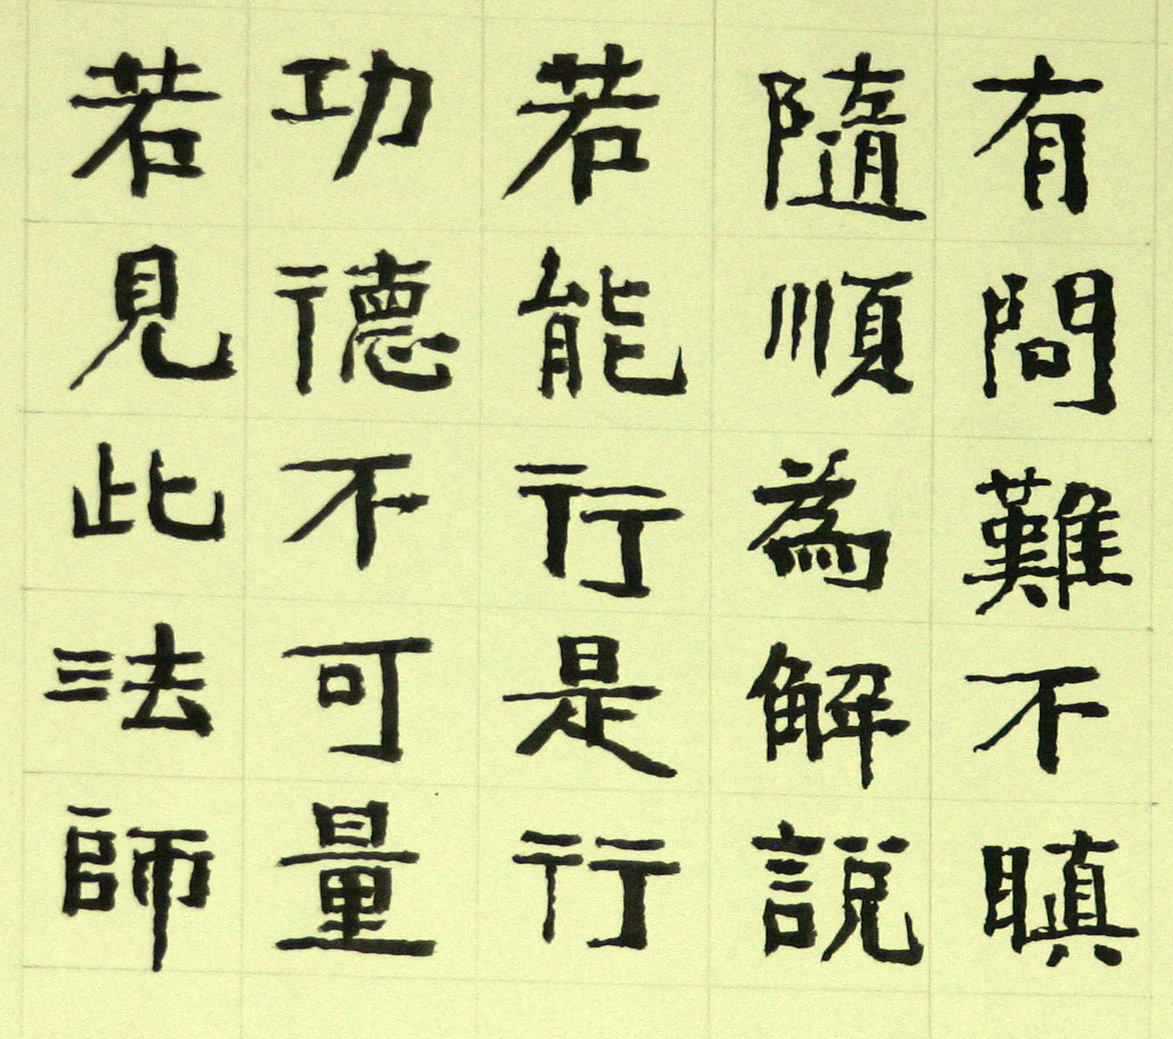 有問難不瞋
隨順為解説
若能行是行
功德不可量
若見此法師